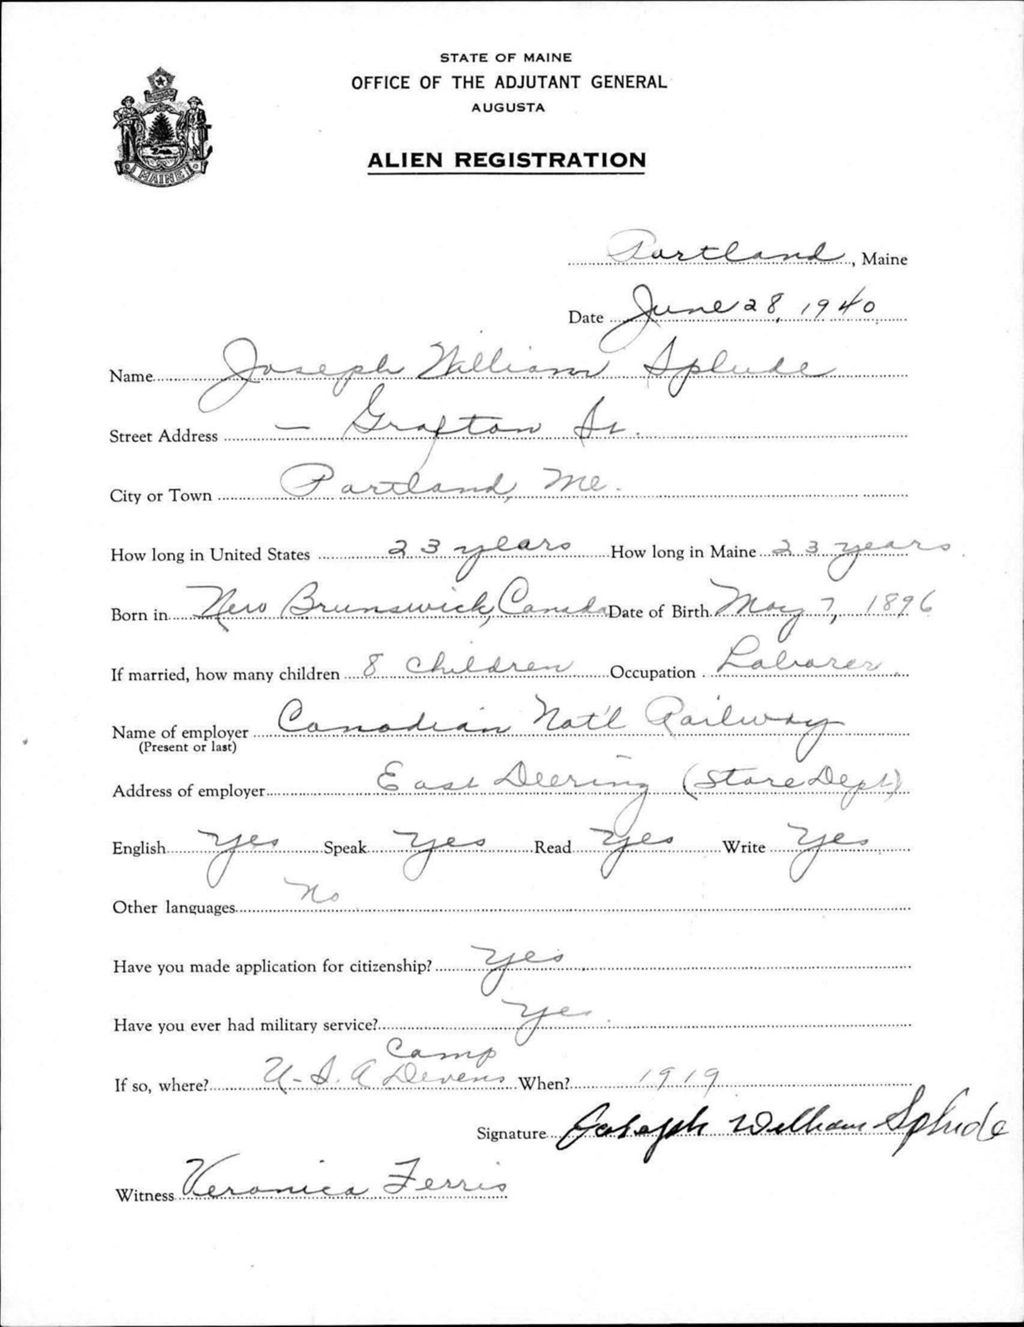 STATE OF MAINE
OFFICE OF THE ADJUTANT GENERAL
AUGUSTA
ALIEN REGISTRATION
MAINE
Portland, Maine
Date June 28, 1940
Name Joseph William Splude
Street Address – Grafton St.
City or Town Portland, Me.
How long in United States 23 years How long in Maine 23 years.
Born in New Brunswick, Canada Date of Birth May 7, 1896
If married, how many children 8 children Occupation Laborer
Name of employer Canadian Nat'l Railway
(Present or last)
Address of employer East Deering (Store Dept)
English Yes Speak Yes Read Yes Write Yes
Other languages No
Have you made application for citizenship? Yes
Have you ever had military service? Yes.
If so, where? U.S.A Camp Devens When? 1919
Signature Joseph William Splude
Witness Veronica Ferris